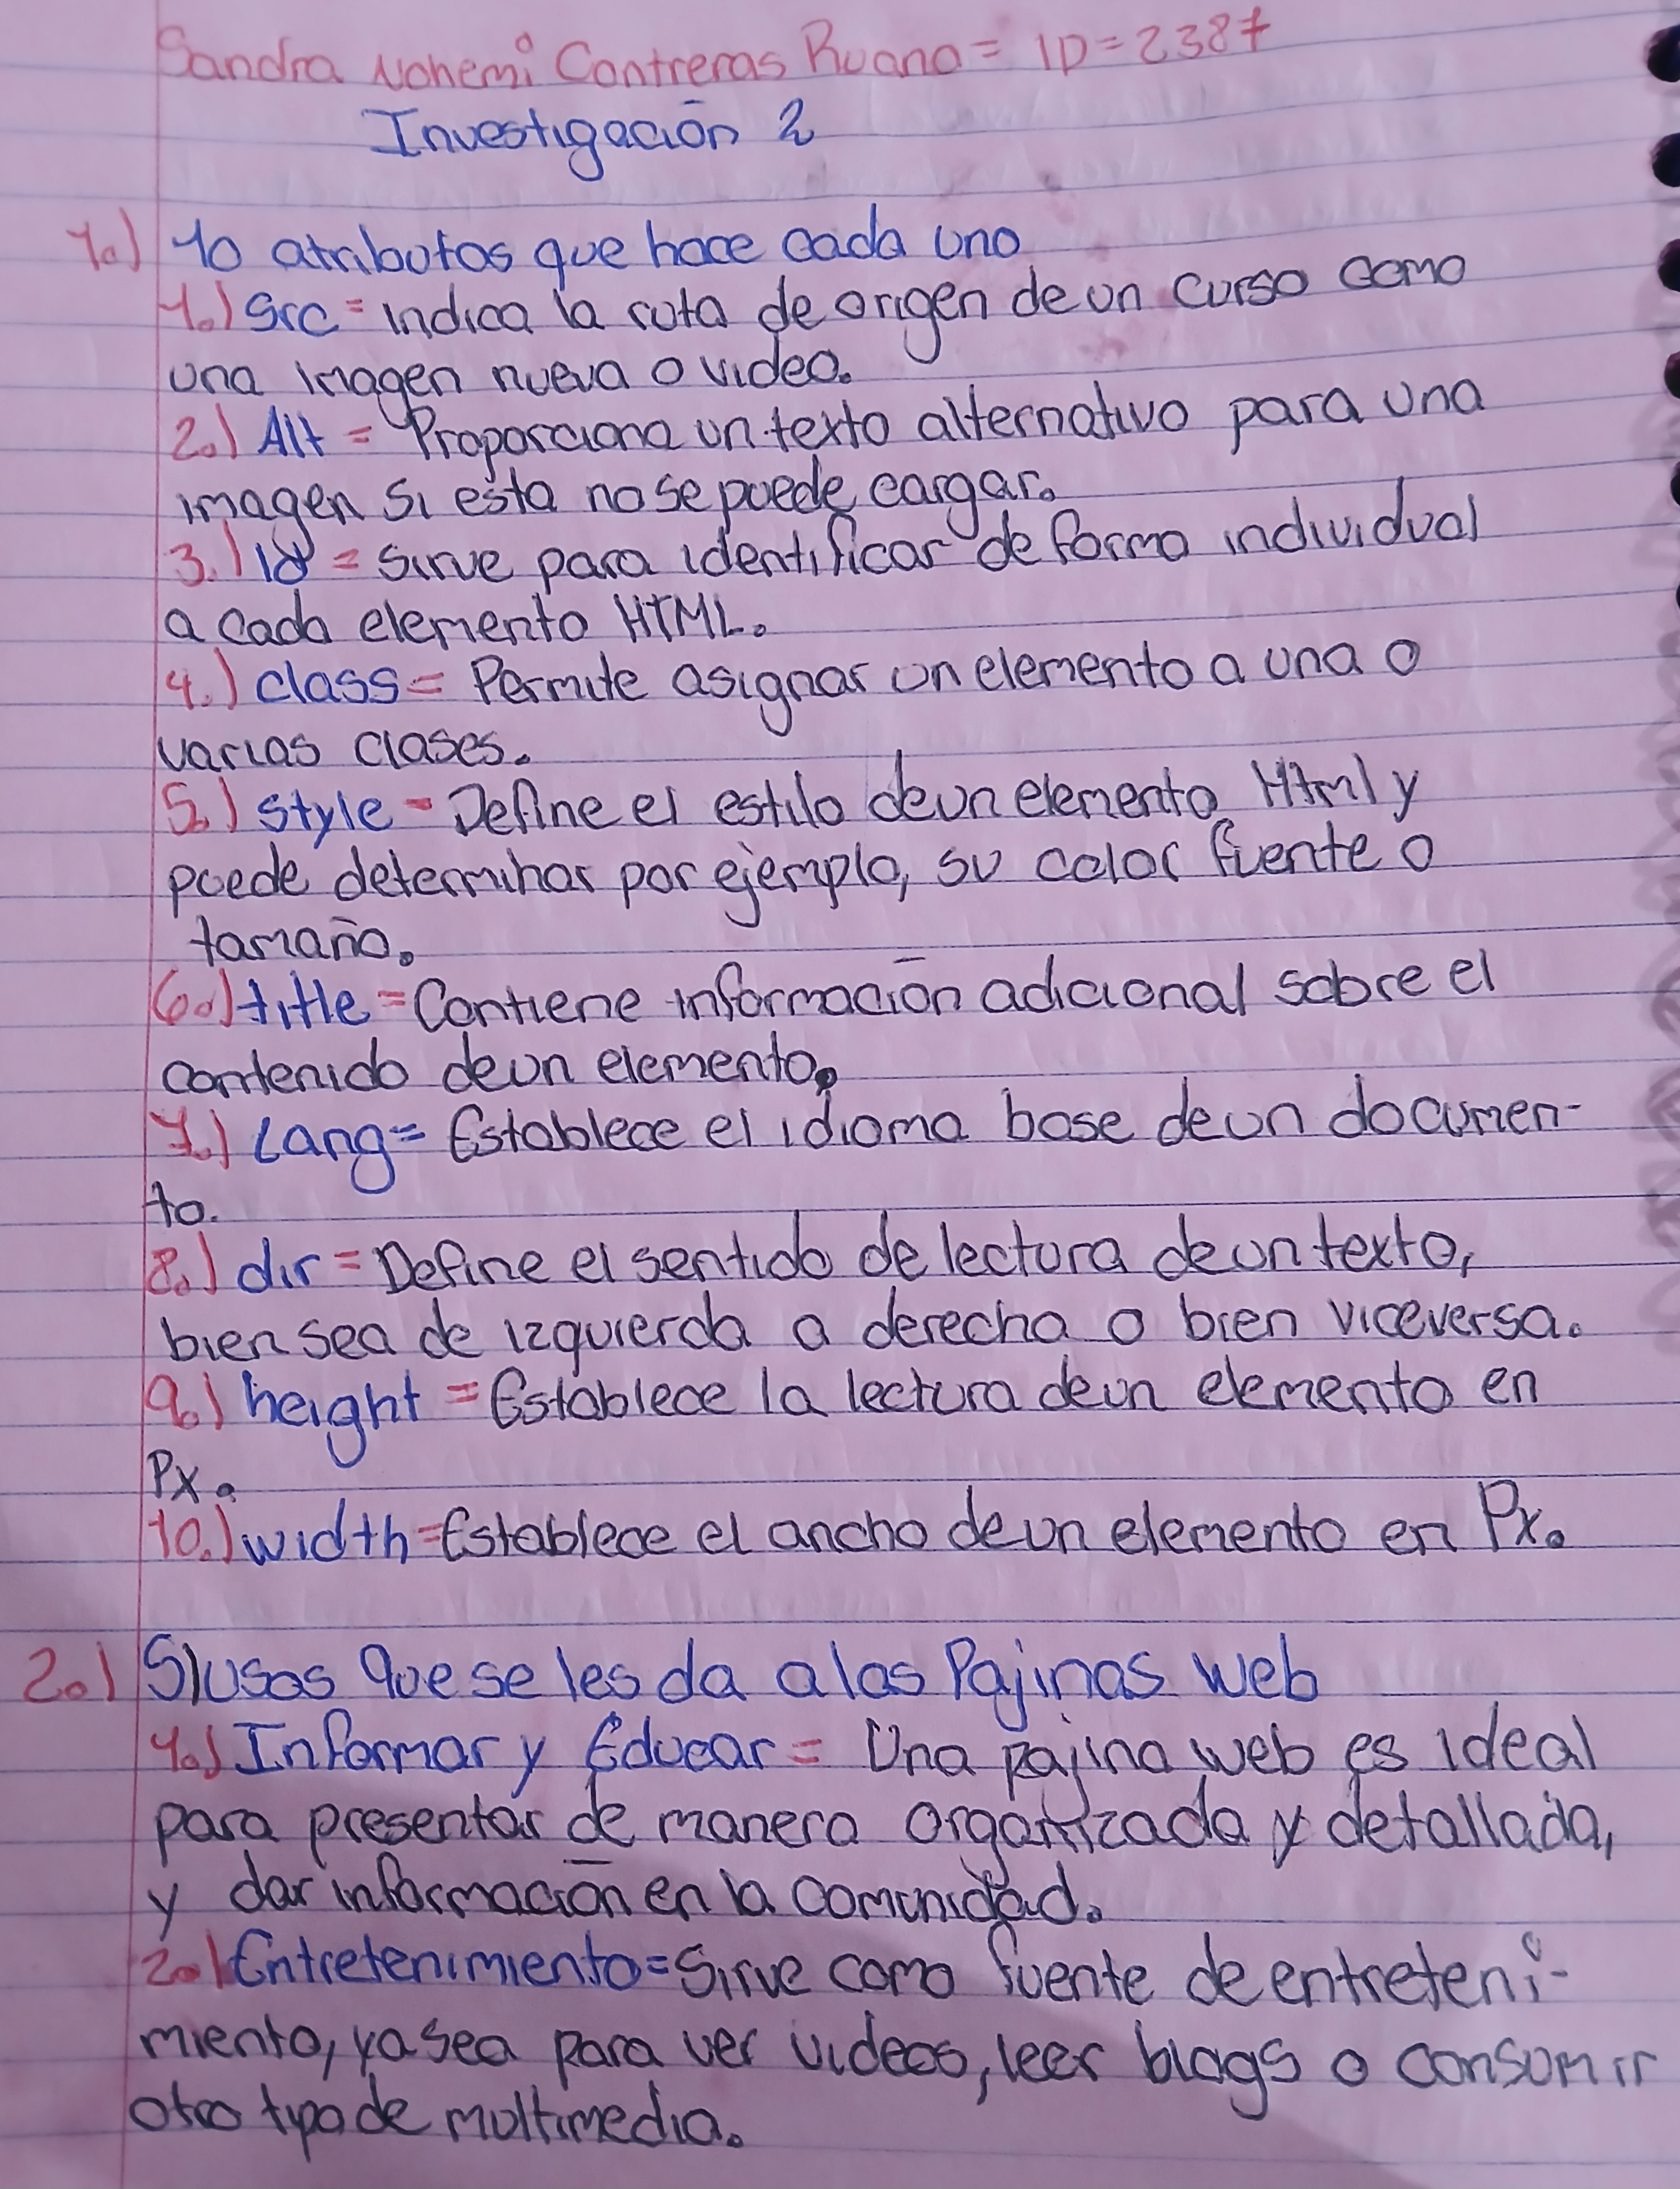 Sandra Nohemi Contreras Ruano = ID = 2387
Investigación 2
1.) 10 atributos que hace cada uno
1.) Src = indica la ruta de origen de un curso como
una imagen nueva o video.
2.) Alt = Proporciona un texto alternativo para una
imagen si esta no se puede cargar.
3.) id = Sirve para identificar de forma individual
a cada elemento HTML.
4.) class = Permite asignar un elemento a una o
varias clases.
5.) style = Define el estilo de un elemento Html y
puede determinar por ejemplo, su color fuente o
tamaño.
6.) title = Contiene información adicional sobre el
contenido de un elemento.
7.) Lang = Establece el idioma base de un documen-
to.
8.) dir = Define el sentido de lectura de un texto,
bien sea de izquierda a derecha o bien viceversa.
9.) height = Establece la lectura de un elemento en
Px.
10.) width = Establece el ancho de un elemento en Px.
2.) 5) usos que se les da a las Pajinas web
1.) Informar y Educar = Una pajina web es ideal
para presentar de manera organizada y detallada,
y dar información en la comunidad.
2.) Entretenimiento = Sirve como fuente de entreteni-
miento, ya sea para ver videos, leer blogs o consumir
otro tipo de multimedia.